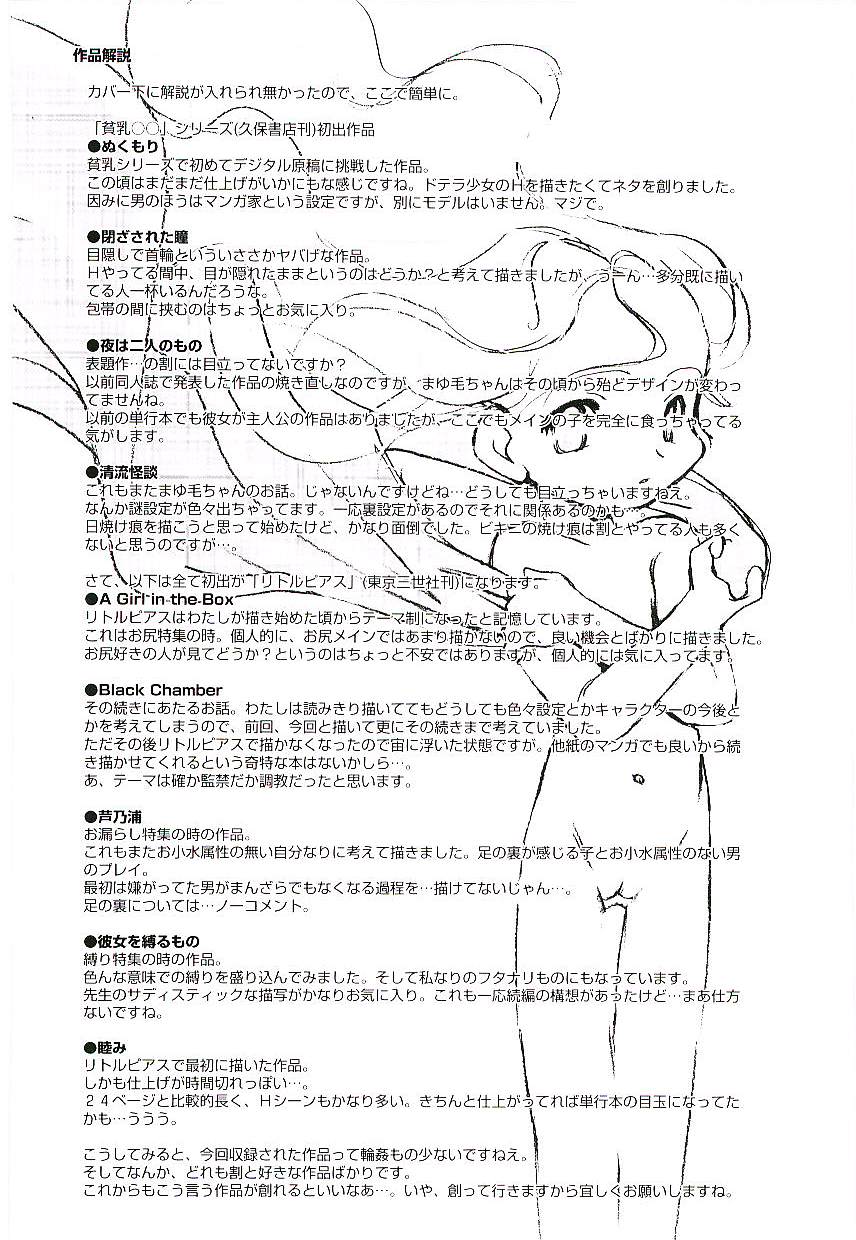 作品解説
カバー下に解説が入れられ無かったので、ここで簡単に。
「貧乳○○」シリーズ(久保書店刊)初出作品
●ぬくもり
貧乳シリーズで初めてデジタル原稿に挑戦した作品。
この頃はまだまだ仕上げがいかにもな感じですね。ドテラ少女のＨを描きたくてネタを創りました。
因みに男のほうはマンガ家という設定ですが、別にモデルはいません。マジで。
●閉ざされた瞳
目隠しで首輪といういささかヤバげな作品。
Ｈやってる間中、目が隠れたままというのはどうか？と考えて描きましたが、うーん…多分既に描い
てる人一杯いるんだろうな。
包帯の間に挟むのはちょっとお気に入り。
●夜は二人のもの
表題作…の割には目立ってないですか？
以前同人誌で発表した作品の焼き直しなのですが、まゆ毛ちゃんはその頃から殆どデザインが変わっ
てませんね。
以前の単行本でも彼女が主人公の作品はありましたが、ここでもメインの子を完全に食っちゃってる
気がします。
●清流怪談
これもまたまゆ毛ちゃんのお話。じゃないんですけどね…どうしても目立っちゃいますねえ。
なんか謎設定が色々出ちゃってます。一応裏設定があるのでそれに関係あるのかも…。
日焼け痕を描こうと思って始めたけど、かなり面倒でした。ビキニの焼け痕は割とやってる人も多く
ないと思うのですが…。
さて、以下は全て初出が「リトルピアス」(東京三世社刊)になります。
●A Girl in the Box
リトルピアスはわたしが描き始めた頃からテーマ制になったと記憶しています。
これはお尻特集の時。個人的に、お尻メインではあまり描かないので、良い機会とばかりに描きました。
お尻好きの人が見てどうか？というのはちょっと不安ではありますが、個人的には気に入ってます。
●Black Chamber
その続きにあたるお話。わたしは読みきり描いててもどうしても色々設定とかキャラクターの今後と
かを考えてしまうので、前回、今回と描いて更にその続きまで考えていました。
ただその後リトルピアスで描かなくなったので宙に浮いた状態ですが。他紙のマンガでも良いから続
き描かせてくれるという奇特な本はないかしら…。
あ、テーマは確か監禁だか調教だったと思います。
●芦乃浦
お漏らし特集の時の作品。
これもまたお小水属性の無い自分なりに考えて描きました。足の裏が感じる子とお小水属性のない男
のプレイ。
最初は嫌がってた男がまんざらでもなくなる過程を…描けてないじゃん…。
足の裏については…ノーコメント。
●彼女を縛るもの
縛り特集の時の作品。
色んな意味での縛りを盛り込んでみました。そして私なりのフタナリものにもなっています。
先生のサディスティックな描写がかなりお気に入り。これも一応続編の構想があったけど…まあ仕方
ないですね。
●睦み
リトルピアスで最初に描いた作品。
しかも仕上げが時間切れっぽい…。
２４ページと比較的長く、Ｈシーンもかなり多い。きちんと仕上がってれば単行本の目玉になってた
かも…ううう。
こうしてみると、今回収録された作品って輪姦もの少ないですねえ。
そしてなんか、どれも割と好きな作品ばかりです。
これからもこう言う作品が創れるといいなあ…。いや、創って行きますから宜しくお願いしますね。